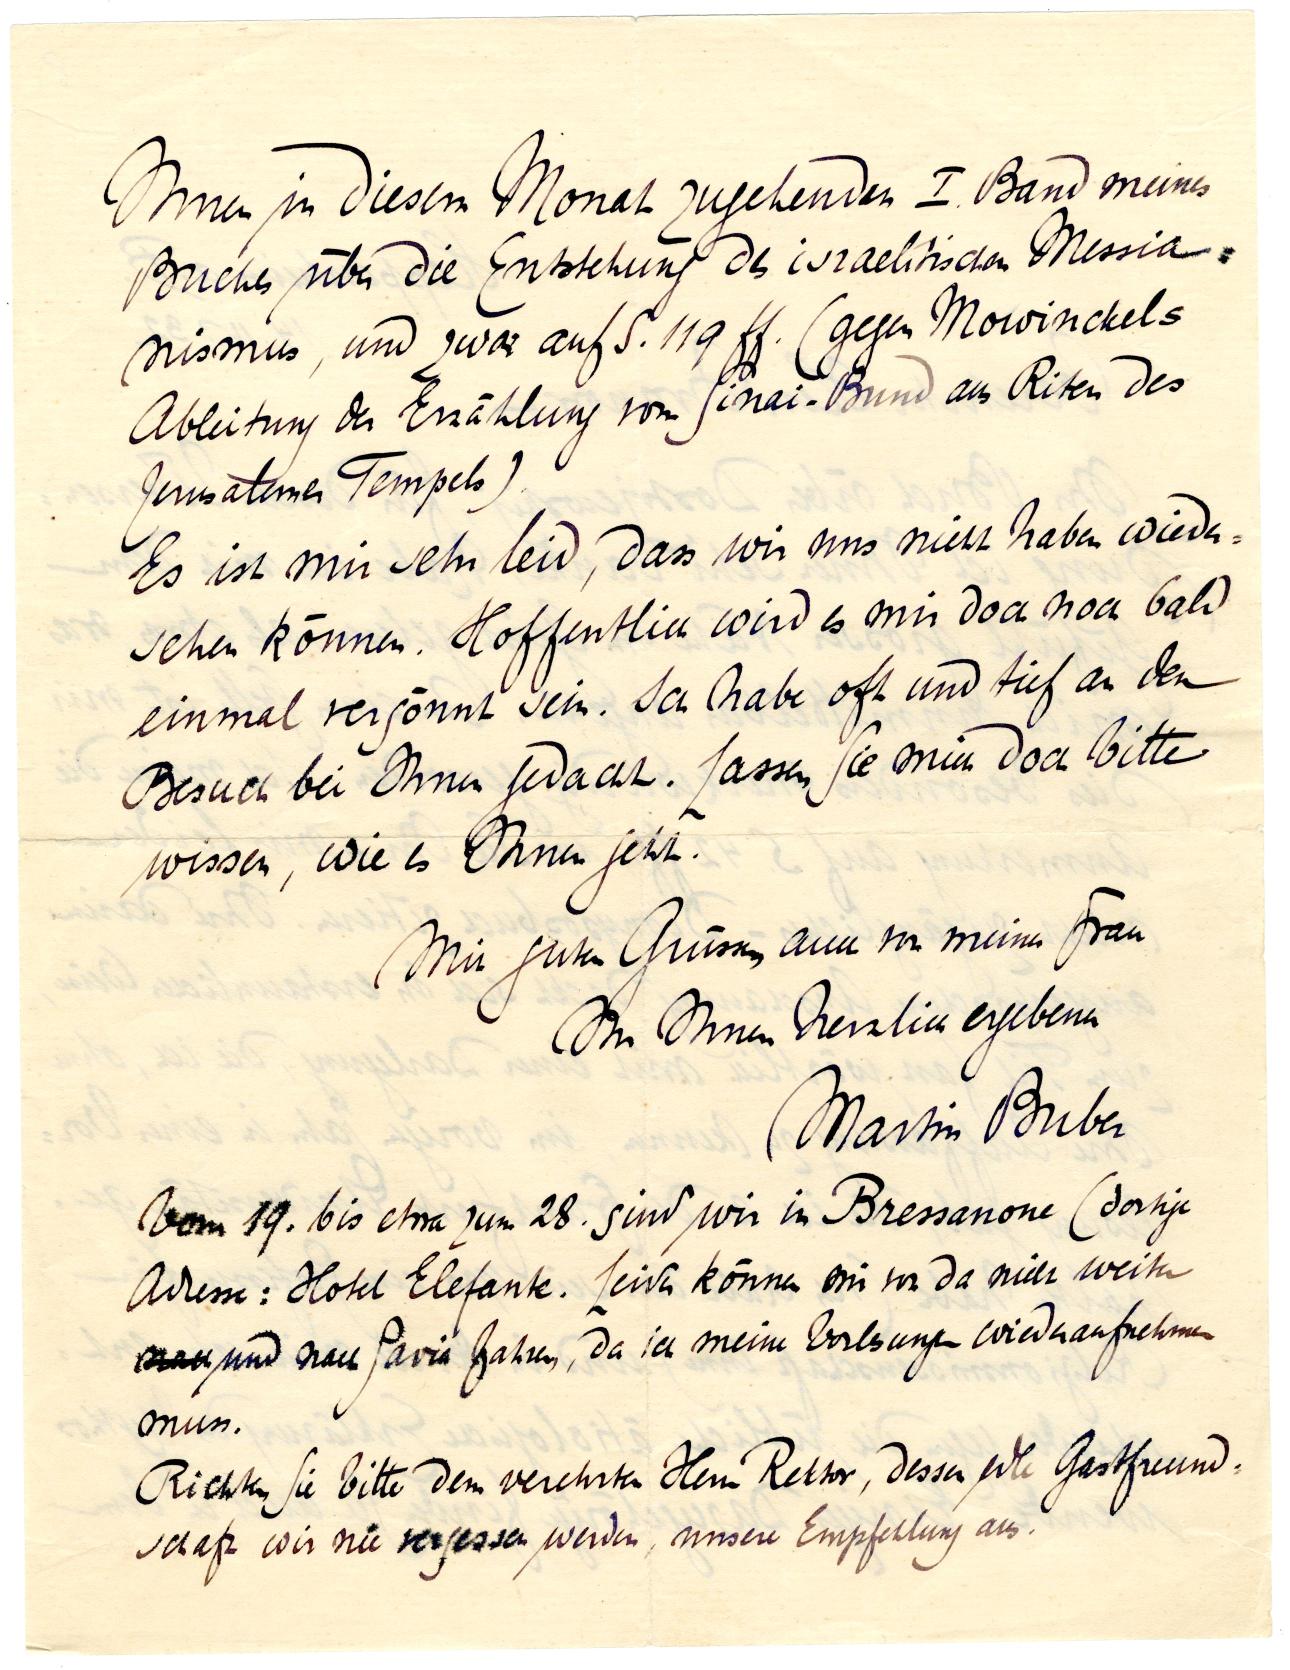 Ihnen in diesem Monat zugehenden I. Band meines
Buches über die Entstehung des israelitischen Messia=
nismus, und zwar auf S. 119 ff. (gegen Mowinckels
Ableitung der Erzählung vom Sinai-Bund aus Riten des
Jerusalemer Tempels).
Es ist mir sehr leid, dass wir uns nicht haben wieder=
sehen können. Hoffentlich wird es mir doch noch bald
einmal vergönnt sein. Ich habe oft und tief an den
Besuch bei Ihnen gedacht. Lassen Sie mich doch bitte
wissen, wie es Ihnen geht.
Mit guten Grüssen, auch von meiner Frau
Ihr Ihnen herzlich ergebener
Martin Buber
Vom 19. bis etwa zum 28. sind wir in Bressanone (dortige
Adresse: Hotel Elefante. Leider können wir von da nicht weiter
und nach Pavia fahren, da ich meine Vorlesungen wiederaufnehmen
muss.
Richten Sie bitte dem verehrten Herrn Rektor, dessen edle Gastfreund=
schaft wir nie vergessen werden, unsere Empfehlung aus.